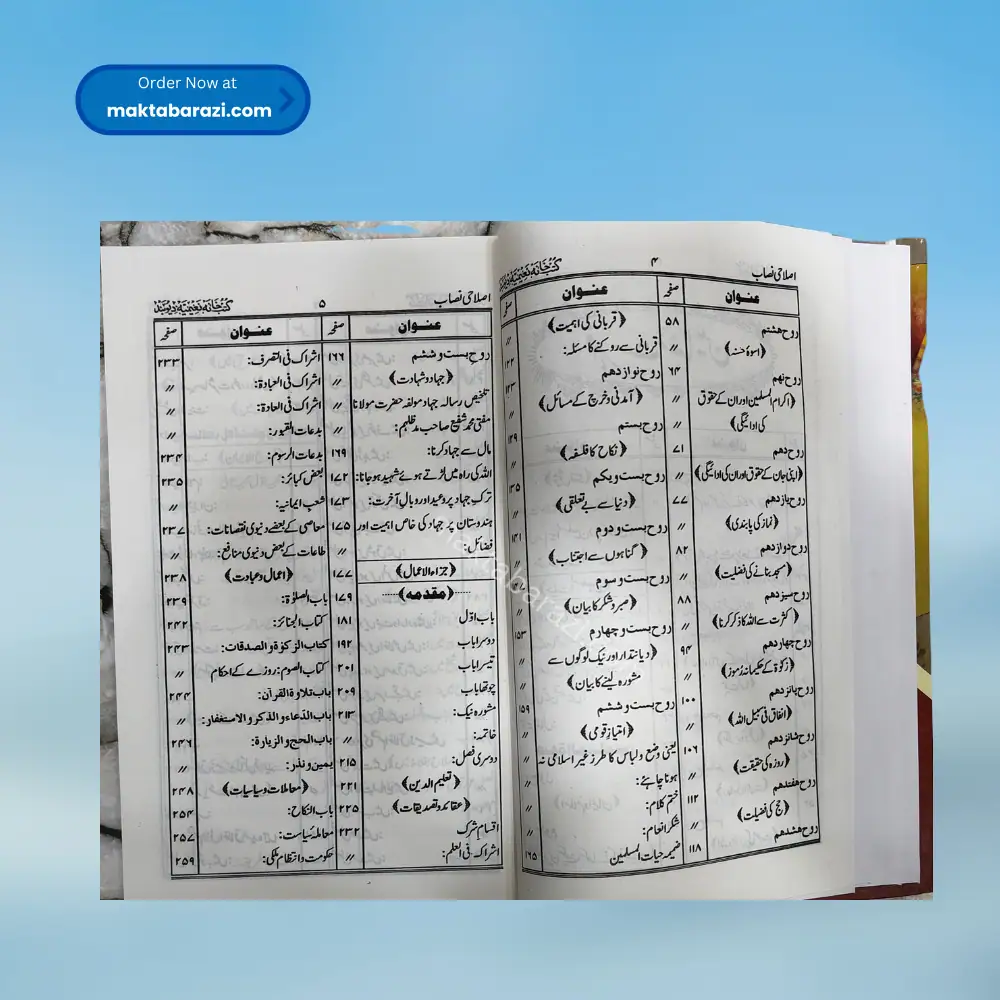 Order Now at
maktabarazi.com
اصلاحی نصاب
۴
کتب خانہ نعیمیہ دیوبند
عنوان
صفحہ
عنوان
صفحہ
روح ہشتم
۵۸
﴿اسوۂ حسنہ﴾
〃
روح نہم
۶۴
﴿اکرام المسلمین اور ان کے حقوق
〃
کی ادائیگی﴾
روح دہم
۷۱
﴿اپنی جان کے حقوق اور ان کی ادائیگی﴾
〃
روح یازدہم
۷۷
﴿نماز کی پابندی﴾
〃
روح دوازدہم
۸۲
﴿مسجد بنانے کی فضلیت﴾
〃
روح سیزدہم
۸۸
﴿کثرت سے اللہ کا ذکر کرنا﴾
〃
روح چہاردہم
۹۴
﴿زکوٰۃ کے حکیمانہ رموز﴾
〃
روح پانزدہم
۱۰۰
﴿انفاق فی سبیل اللہ﴾
〃
روح شانزدہم
۱۰۶
﴿روزہ کی حقیقت﴾
〃
روح ہفتدہم
۱۱۲
﴿حج کی فضیلت﴾
〃
روح ہشدہم
۱۱۸
﴿قربانی کی اہمیت﴾
〃
قربانی سے روکنے کا مسئلہ:
۱۲۲
روح نوازدہم
۱۲۳
﴿آمدنی و خرچ کے مسائل﴾
〃
روح بستم
۱۲۹
﴿نکاح کا فلسفہ﴾
〃
روح بست ویکم
۱۳۵
﴿دنیا سے بے تعلقی﴾
〃
روح بست و دوم
۱۴۱
﴿گناہوں سے اجتناب﴾
〃
روح بست و سوم
﴿صبر و شکر کا بیان﴾
〃
روح بست و چہارم
۱۵۳
﴿دیانتدار اور نیک لوگوں سے
〃
مشورہ لینے کا بیان﴾
روح بست و ششم
۱۵۹
﴿امتیاز قومی﴾
〃
یعنی وضع ولباس کا طرز غیر اسلامی نہ
〃
ہونا چاہئے:
ختم کلام:
〃
شکر انعام:
〃
ضمیمہ حیات المسلمین
۱۶۵
اصلاحی نصاب
۵
کتب خانہ نعیمیہ دیوبند
عنوان
صفحہ
عنوان
صفحہ
روح بست و ششم
۱۶۶
﴿جہاد و شہادت﴾
〃
تلخیص رسالہ جہاد مولفہ حضرت مولانا
〃
مفتی محمد شفیع صاحب مدظلہم:
مال سے جہاد کرنا:
۱۶۹
اللہ کی راہ میں لڑتے ہوئے شہید ہو جانا:
۱۷۲
ترک جہاد پر وعید اور وبال آخرت:
۱۷۳
ہندوستان پر جہاد کی خاص اہمیت اور
۱۷۵
فضائل:
〃
﴿جزاء الاعمال﴾
۱۷۷
﴿مقدمہ﴾
۱۷۹
باب اوّل
۱۸۱
دوسرا باب
۱۹۲
تیسرا باب
۲۰۱
چوتھا باب
۲۰۹
مشورہ نیک:
۲۱۳
خاتمہ:
〃
دوسری فصل:
۲۱۵
﴿تعلیم الدین﴾
۲۲۱
﴿عقائد و تصدیقات﴾
۲۲۵
اقسام شرک
۲۳۲
اشراک فی العلم:
〃
اشراک فی التصرف:
۲۳۳
اشراک فی العبادۃ:
〃
اشراک فی العادۃ:
〃
بدعات القبور:
〃
بدعات الرسوم:
۲۳۴
بعض کبائر:
۲۳۵
شعب ایمانیہ:
〃
معاصی کے بعضے دنیوی نقصانات:
۲۳۷
طاعات کے بعض دنیوی منافع:
〃
﴿اعمال وعبادت﴾
۲۳۸
باب الصلوٰۃ:
۲۳۹
کتاب الجنائز:
۲۴۲
کتاب الزکوٰۃ و الصدقات:
۲۴۳
کتاب الصوم: روزے کے احکام
〃
باب تلاوۃ القرآن:
۲۴۴
باب الدعاء و الذکر و الاستغفار:
〃
باب الحج و الزیارۃ:
۲۴۶
یمین و نذر:
〃
﴿معاملات و سیاسیات﴾
۲۴۸
باب النکاح:
۲۵۴
معاملہ سیاست:
۲۵۷
حکومت و انتظام ملکی:
۲۵۹